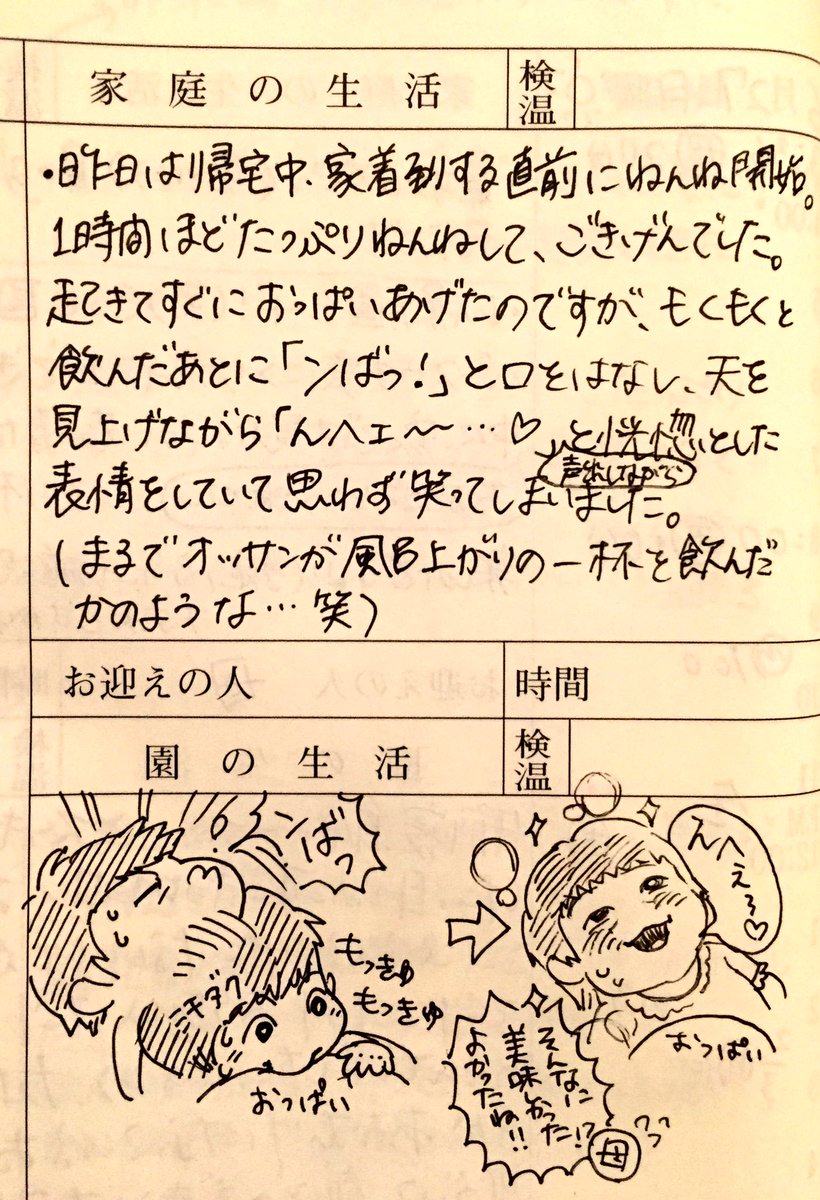 家庭の生活
検温
・昨日は帰宅中、家着到する直前にねんね開始。
1時間ほどたっぷりねんねして、ごきげんでした。
起きてすぐにおっぱいあげたのですが、もくもくと
飲んだあとに「ンばっ!」と口をはなし、天を
見上げながら「んヘェ〜〜…♡」と恍惚とした
声出しながら
表情をしていて思わず笑ってしまいました。
(まるでオッサンが風呂上がりの一杯を飲んだ
かのような…笑)
お迎えの人
時間
園の生活
検温
ンばっ
もっきゅ
もっきゅ
おっぱい
えへえ〜♡
おっぱい
そんなに
美味しかった!?
よかったね!!
母